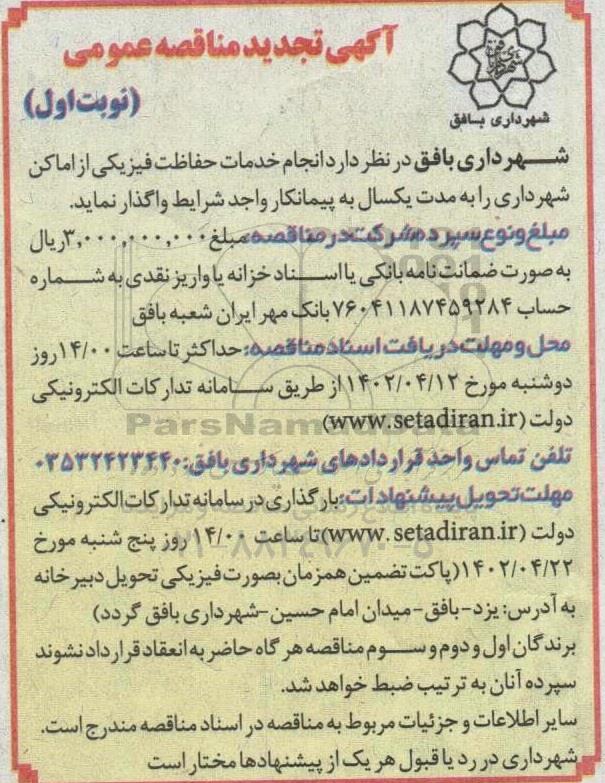 آگهی تجدید مناقصه عمومی
(نوبت اول)
شهرداری بافق
شهرداری بافق در نظر دارد انجام خدمات حفاظت فیزیکی از اماکن
شهرداری را به مدت یکسال به پیمانکار واجد شرایط واگذار نماید.
مبلغ و نوع سپرده شرکت در مناقصه: مبلغ ۳,۰۰۰,۰۰۰,۰۰۰ ریال
به صورت ضمانت نامه بانکی یا اسناد خزانه یا واریز نقدی به شماره
حساب ۷۶۰۴۱۱۸۷۴۵۹۲۸۴ بانک مهر ایران شعبه بافق
محل و مهلت دریافت اسناد مناقصه: حداکثر تا ساعت ۱۴/۰۰ روز
دوشنبه مورخ ۱۴۰۲/۰۴/۱۲ از طریق سامانه تدارکات الکترونیکی
دولت (www.setadiran.ir)
ParsNamadData
تلفن تماس واحد قراردادهای شهرداری بافق: ۰۳۵۳۲۴۲۳۴۴۰
مهلت تحویل پیشنهادات: بارگذاری در سامانه تدارکات الکترونیکی
دولت (www.setadiran.ir) تا ساعت ۱۴/۰۰ روز پنج شنبه مورخ
۰۲۱-۸۸۳۴۹۶۷۰-۵
۱۴۰۲/۰۴/۲۲ (پاکت تضمین همزمان بصورت فیزیکی تحویل دبیرخانه
به آدرس: یزد-بافق-میدان امام حسین-شهرداری بافق گردد)
برندگان اول و دوم و سوم مناقصه هر گاه حاضر به انعقاد قرارداد نشوند
سپرده آنان به ترتیب ضبط خواهد شد.
سایر اطلاعات و جزئیات مربوط به مناقصه در اسناد مناقصه مندرج است.
شهرداری در رد یا قبول هر یک از پیشنهادها مختار است